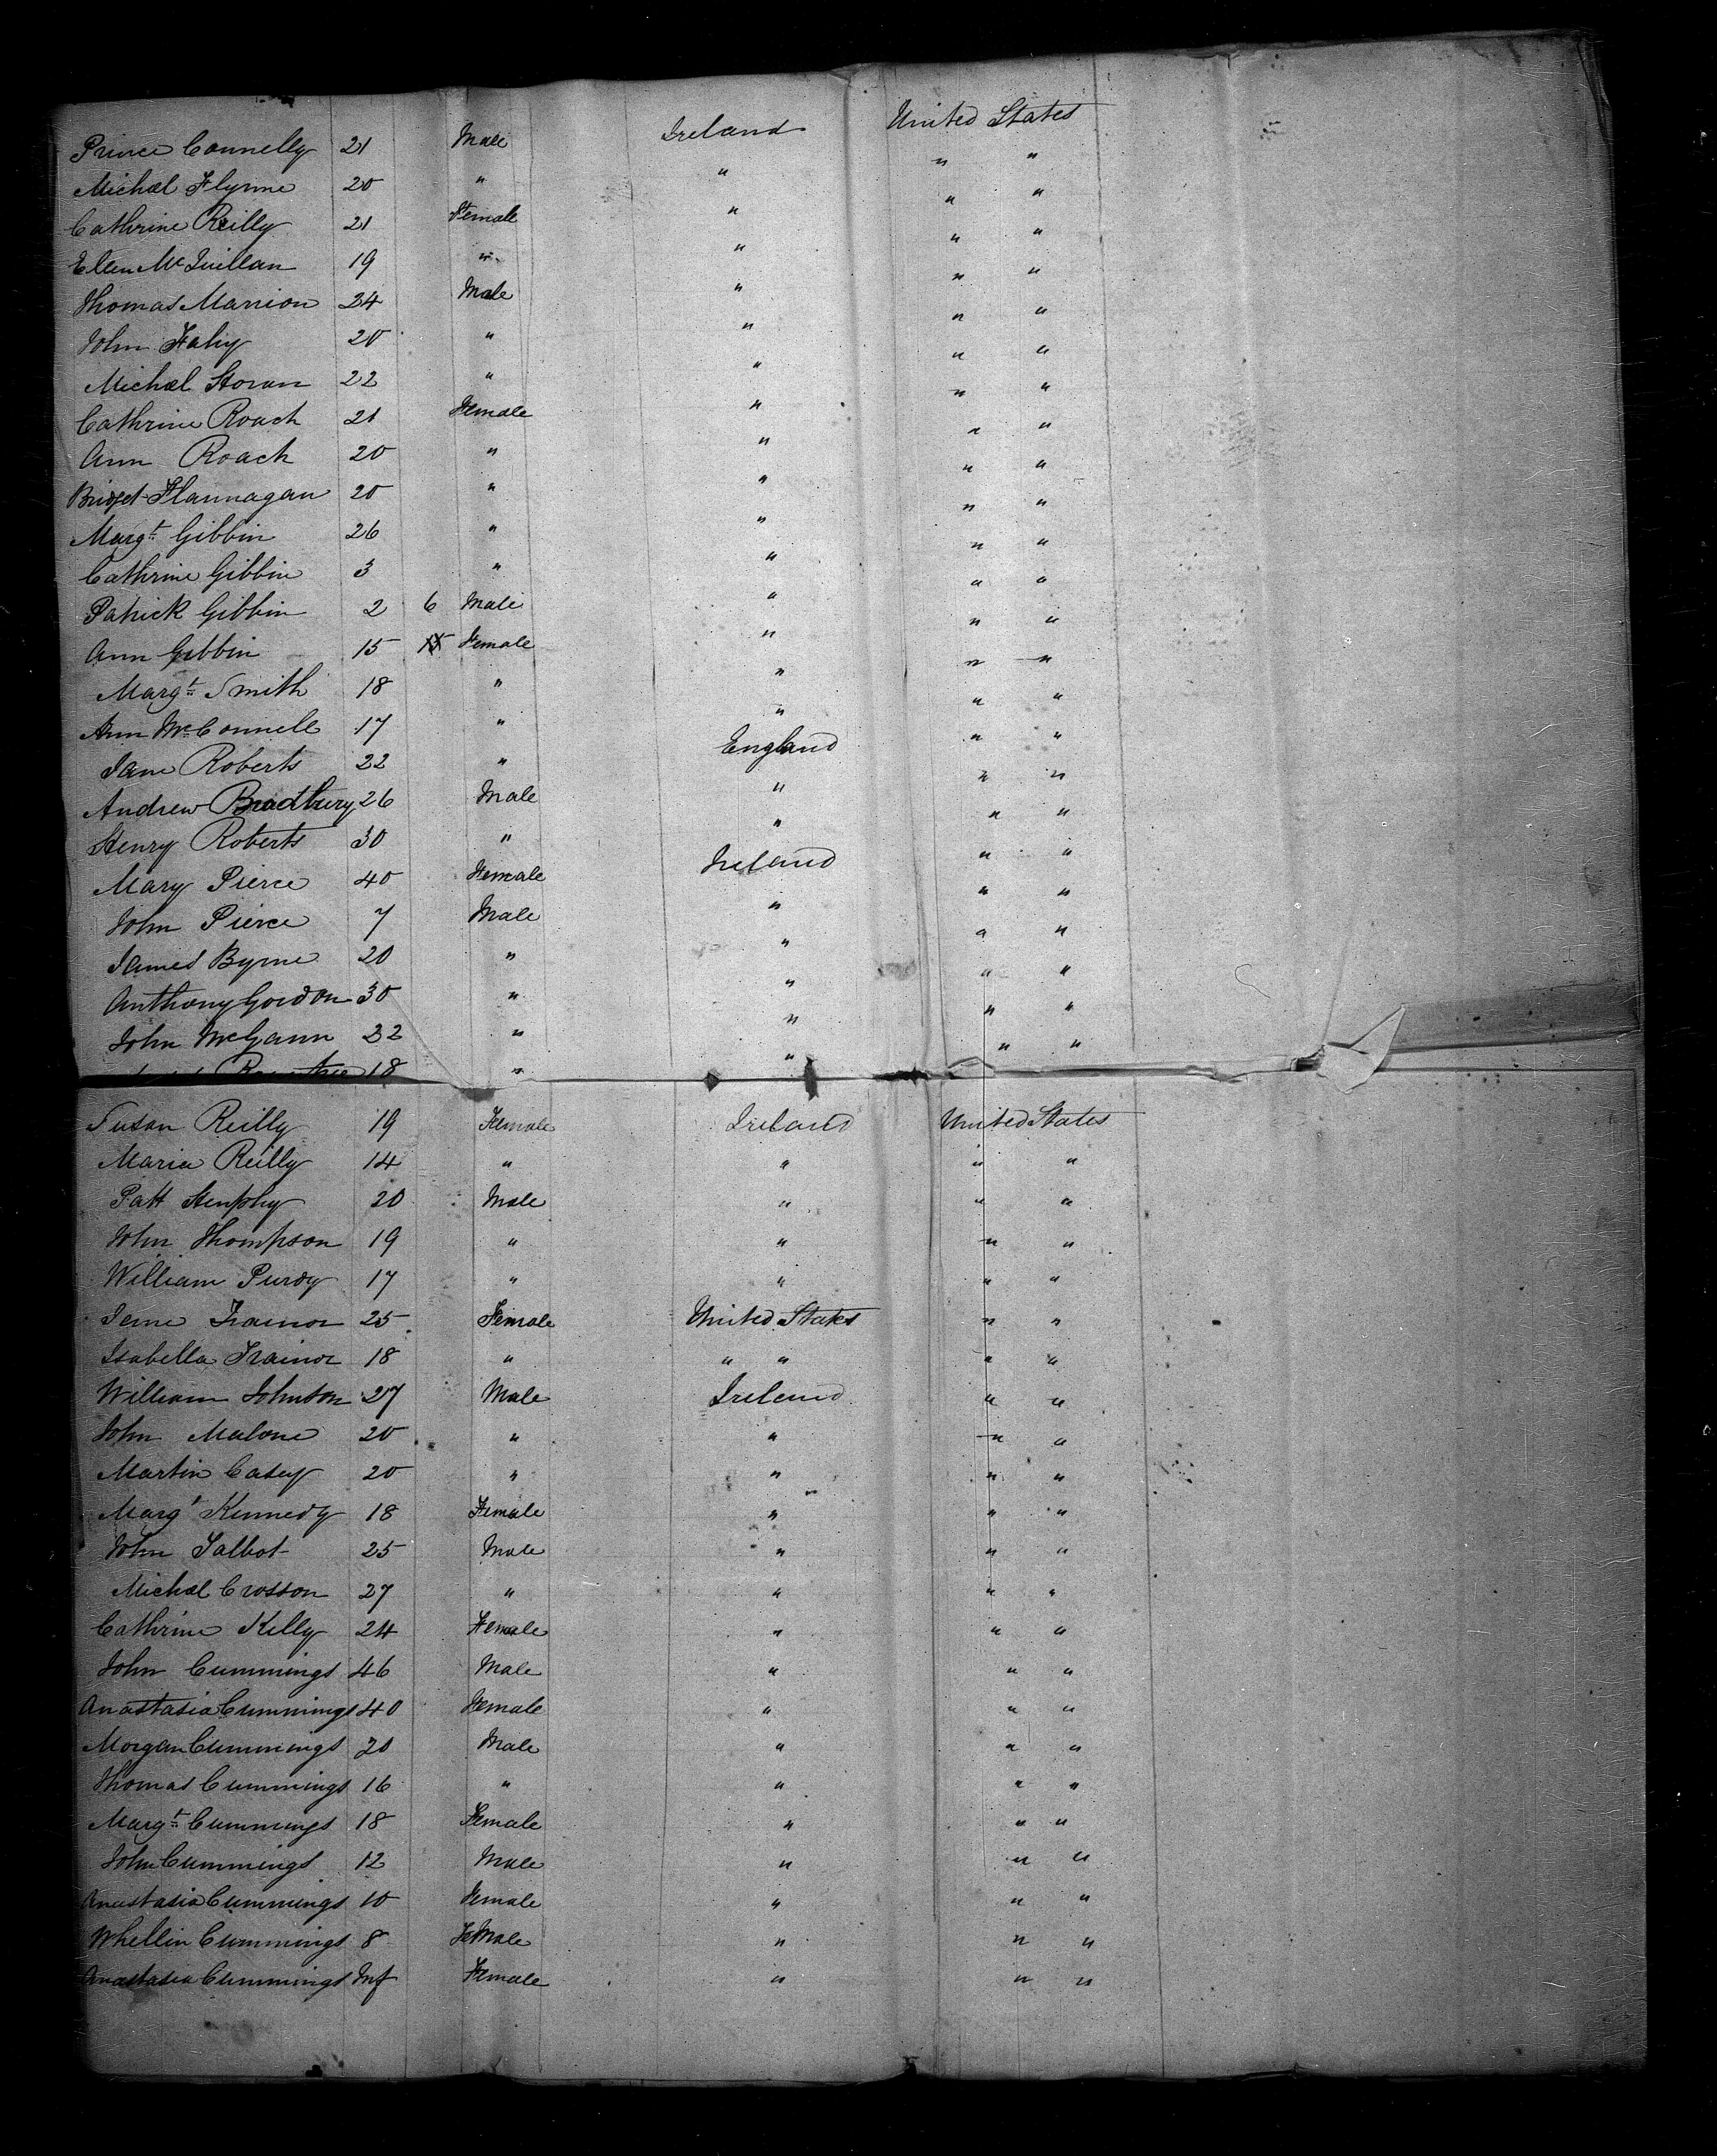 Prince Connelly 21 Male Ireland United States
Michael Flynne 20 " " " "
Cathrine Reilly 21 Female " " "
Ellen McQuillan 19 " " " "
Thomas Mannion 24 Male " " "
John Fahy 20 " " " "
Michael Horan 22 " " " "
Cathrine Roach 21 Female " " "
Ann Roach 20 " " " "
Bridget Flannagan 20 " " " "
Margt Gibbin 26 " " " "
Cathrine Gibbin 3 " " " "
Patrick Gibbin 2 6 Male " " "
Ann Gibbin 15 15 Female " " "
Margt Smith 18 " " " "
Ann McConnell 17 " " " "
Jane Roberts 22 " England " "
Andrew Bradbury 26 Male " " "
Henry Roberts 30 " " " "
Mary Pierce 40 Female Ireland " "
John Pierce 7 Male " " "
James Byrne 20 " " " "
Anthony Gordon 30 " " " "
John McGann 22 " " " "
18 " "
Susan Reilly 19 Female Ireland United States
Maria Reilly 14 " " " "
Patt Henphy 20 Male " " "
John Thompson 19 " " " "
William Purdy 17 " " " "
Jane Trainor 25 Female United States " "
Isabella Trainor 18 " " " " "
William Johnson 27 Male Ireland " "
John Malone 20 " " " "
Martin Casey 20 " " " "
Margt Kennedy 18 Female " " "
John Talbot 25 Male " " "
Michael Crosson 27 " " " "
Cathrine Kelly 24 Female " " "
John Cummings 46 Male " " "
Anastasia Cummings 40 Female " " "
Morgan Cummings 20 Male " " "
Thomas Cummings 16 " " " "
Margt Cummings 18 Female " " "
John Cummings 12 Male " " "
Anastasia Cummings 10 Female " " "
Whellin Cummings 8 FeMale " " "
Anastasia Cummings Inf Female " " "